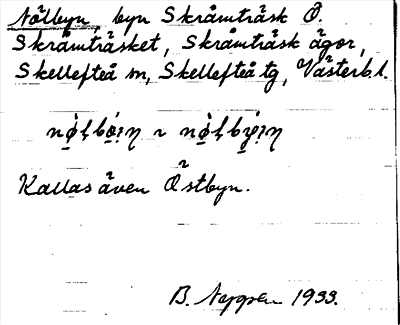 Nölbyn, byn Skråmträsk Ö.
Skråmträsket, Skråmträsk ägor,
Skellefteå m, Skellefteå tg, Västerb. l.
Kallas även Östbyn.
B. 1933.